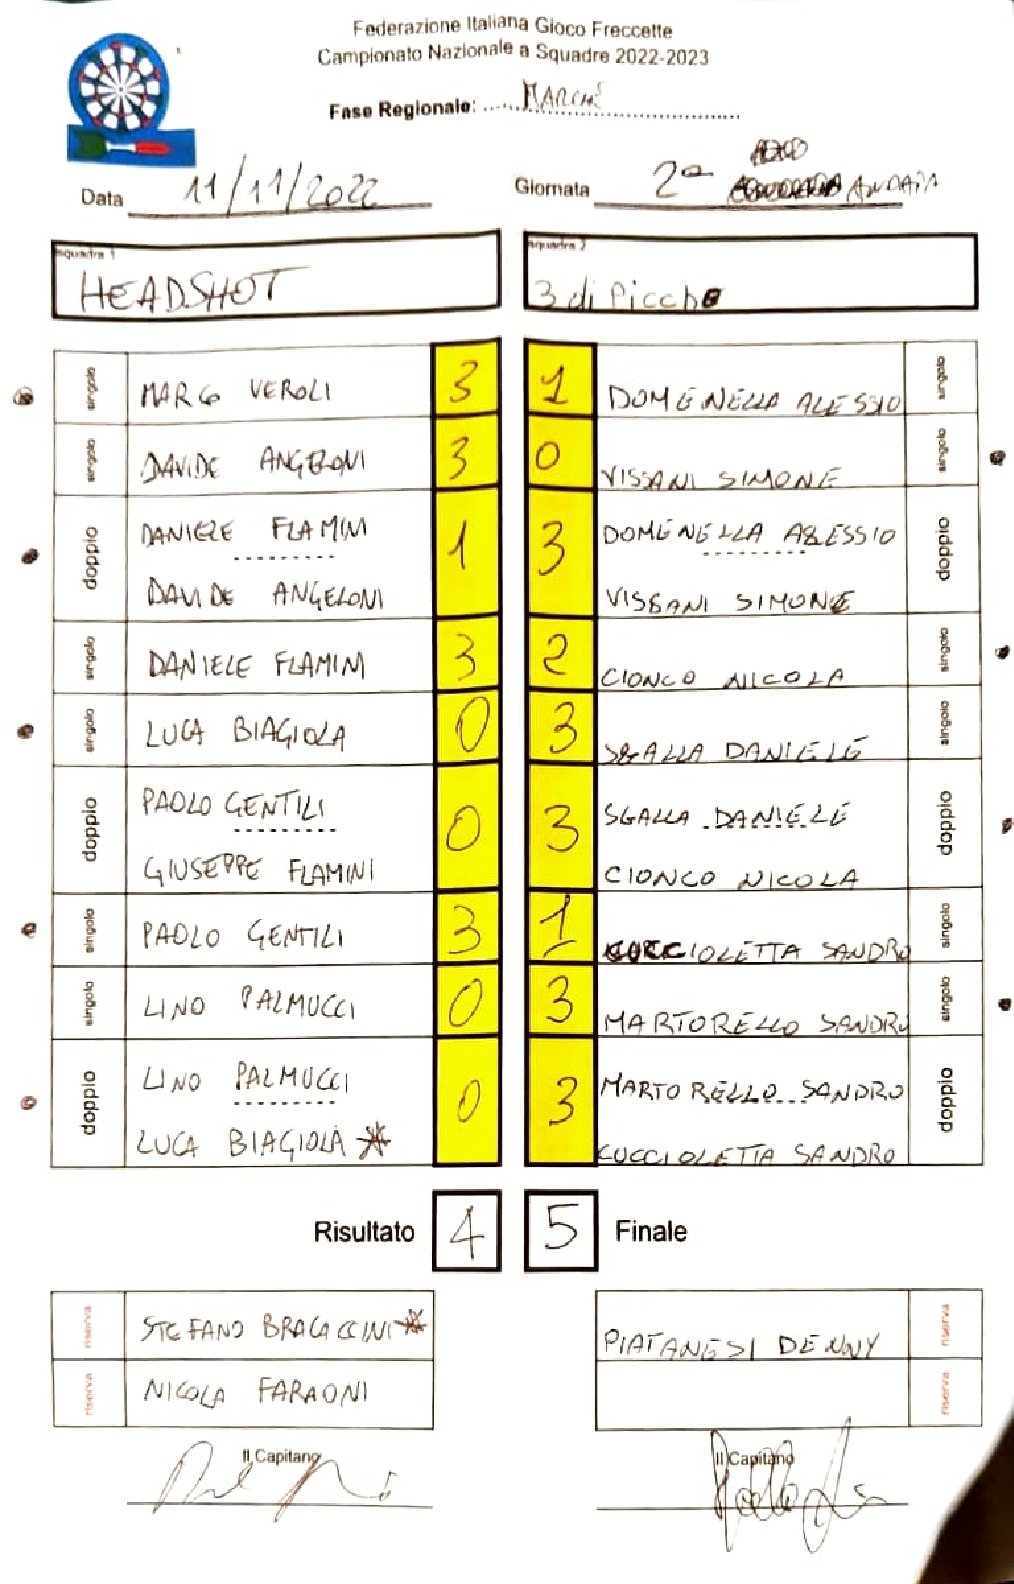 Federazione Italiana Gioco Freccette
Campionato Nazionale a Squadre 2022-2023
Fase Regionale: MARCHE
Data 11/11/2022 Giornata 2ª ANDATA
squadra 1 squadra 2
HEADSHOT 3 di Picche
singolo MARCO VEROLI 3 1 DOMENELLA ALESSIO singolo
singolo DAVIDE ANGELONI 3 0 VISSANI SIMONE singolo
doppio DANIELE FLAMINI 1 3 DOMENELLA ALESSIO doppio
DAVIDE ANGELONI VISSANI SIMONE
singolo DANIELE FLAMINI 3 2 CIONCO NICOLA singolo
singolo LUCA BIAGIOLA 0 3 SGALLA DANIELE singolo
doppio PAOLO GENTILI 0 3 SGALLA DANIELE doppio
GIUSEPPE FLAMINI CIONCO NICOLA
singolo PAOLO GENTILI 3 1 CUCCIOLETTA SANDRO singolo
singolo LINO PALMUCCI 0 3 MARTORELLO SANDRO singolo
doppio LINO PALMUCCI 0 3 MARTORELLO SANDRO doppio
LUCA BIAGIOLA * CUCCIOLETTA SANDRO
Risultato 4 5 Finale
riserva STEFANO BRACACCINI * PIATANESI DENNY riserva
riserva NICOLA FARAONI riserva
Il Capitano Il Capitano